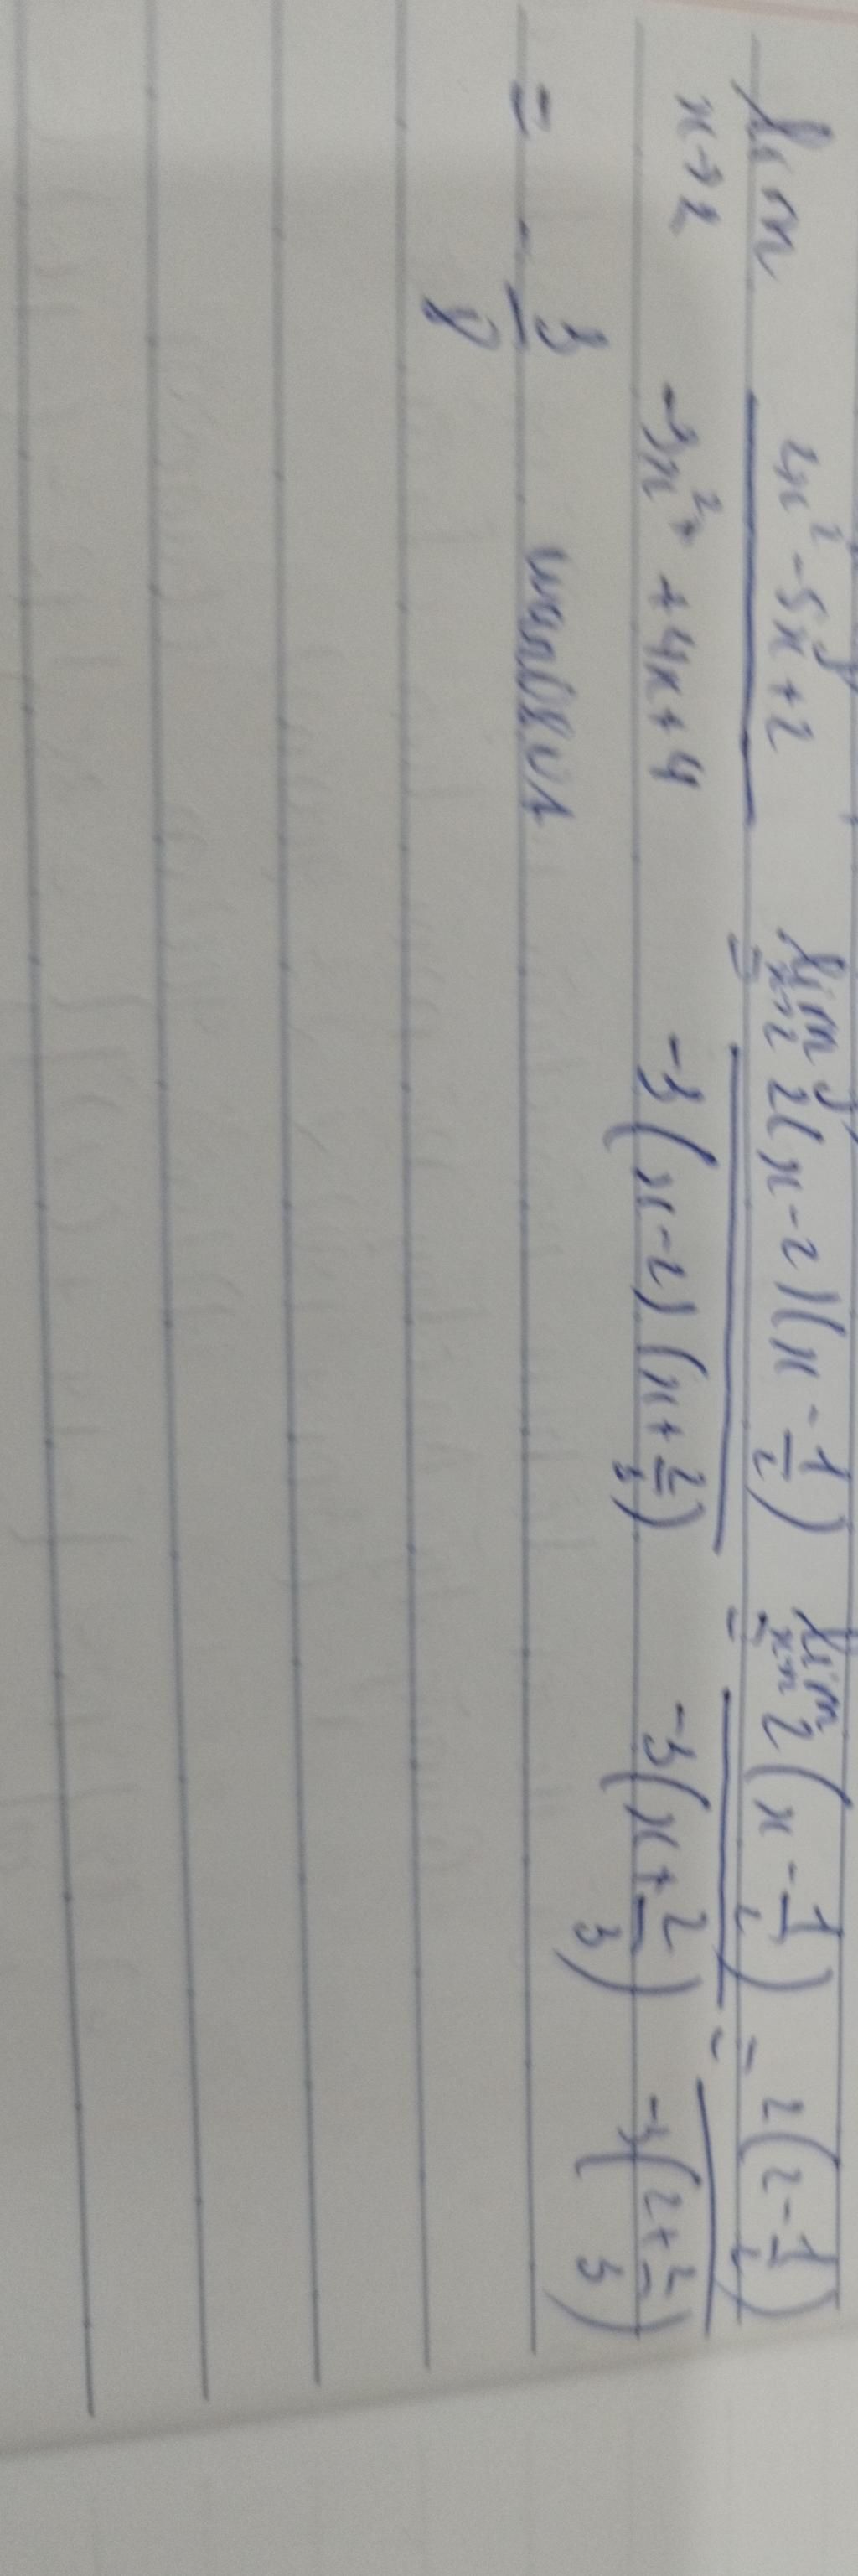 lim x→2 (2x² - 5x + 2)/(-3x² + 4x + 4) = lim x→2 2(x-2)(x - 1/2)/(-3(x-2)(x + 2/3)) = lim x→2 2(x - 1/2)/(-3(x + 2/3)) = 2(2 - 1/2)/(-3(2 + 2/3))
= - 3/8